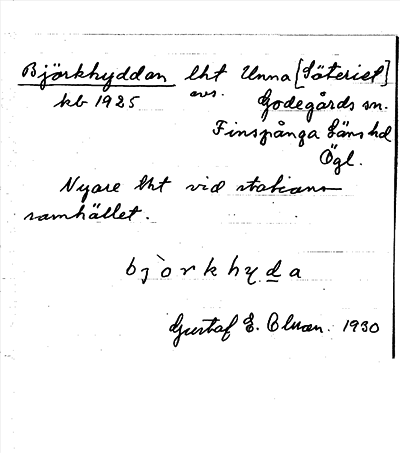 Björkhyddan lht Unna [Säteriet]
kb 1925 avs. Godegårds sn.
Finspånga Läns hd
Ögl.
Nyare lht vid stations-
samhället.
björkhyda
Gustaf E. Olsson. 1930